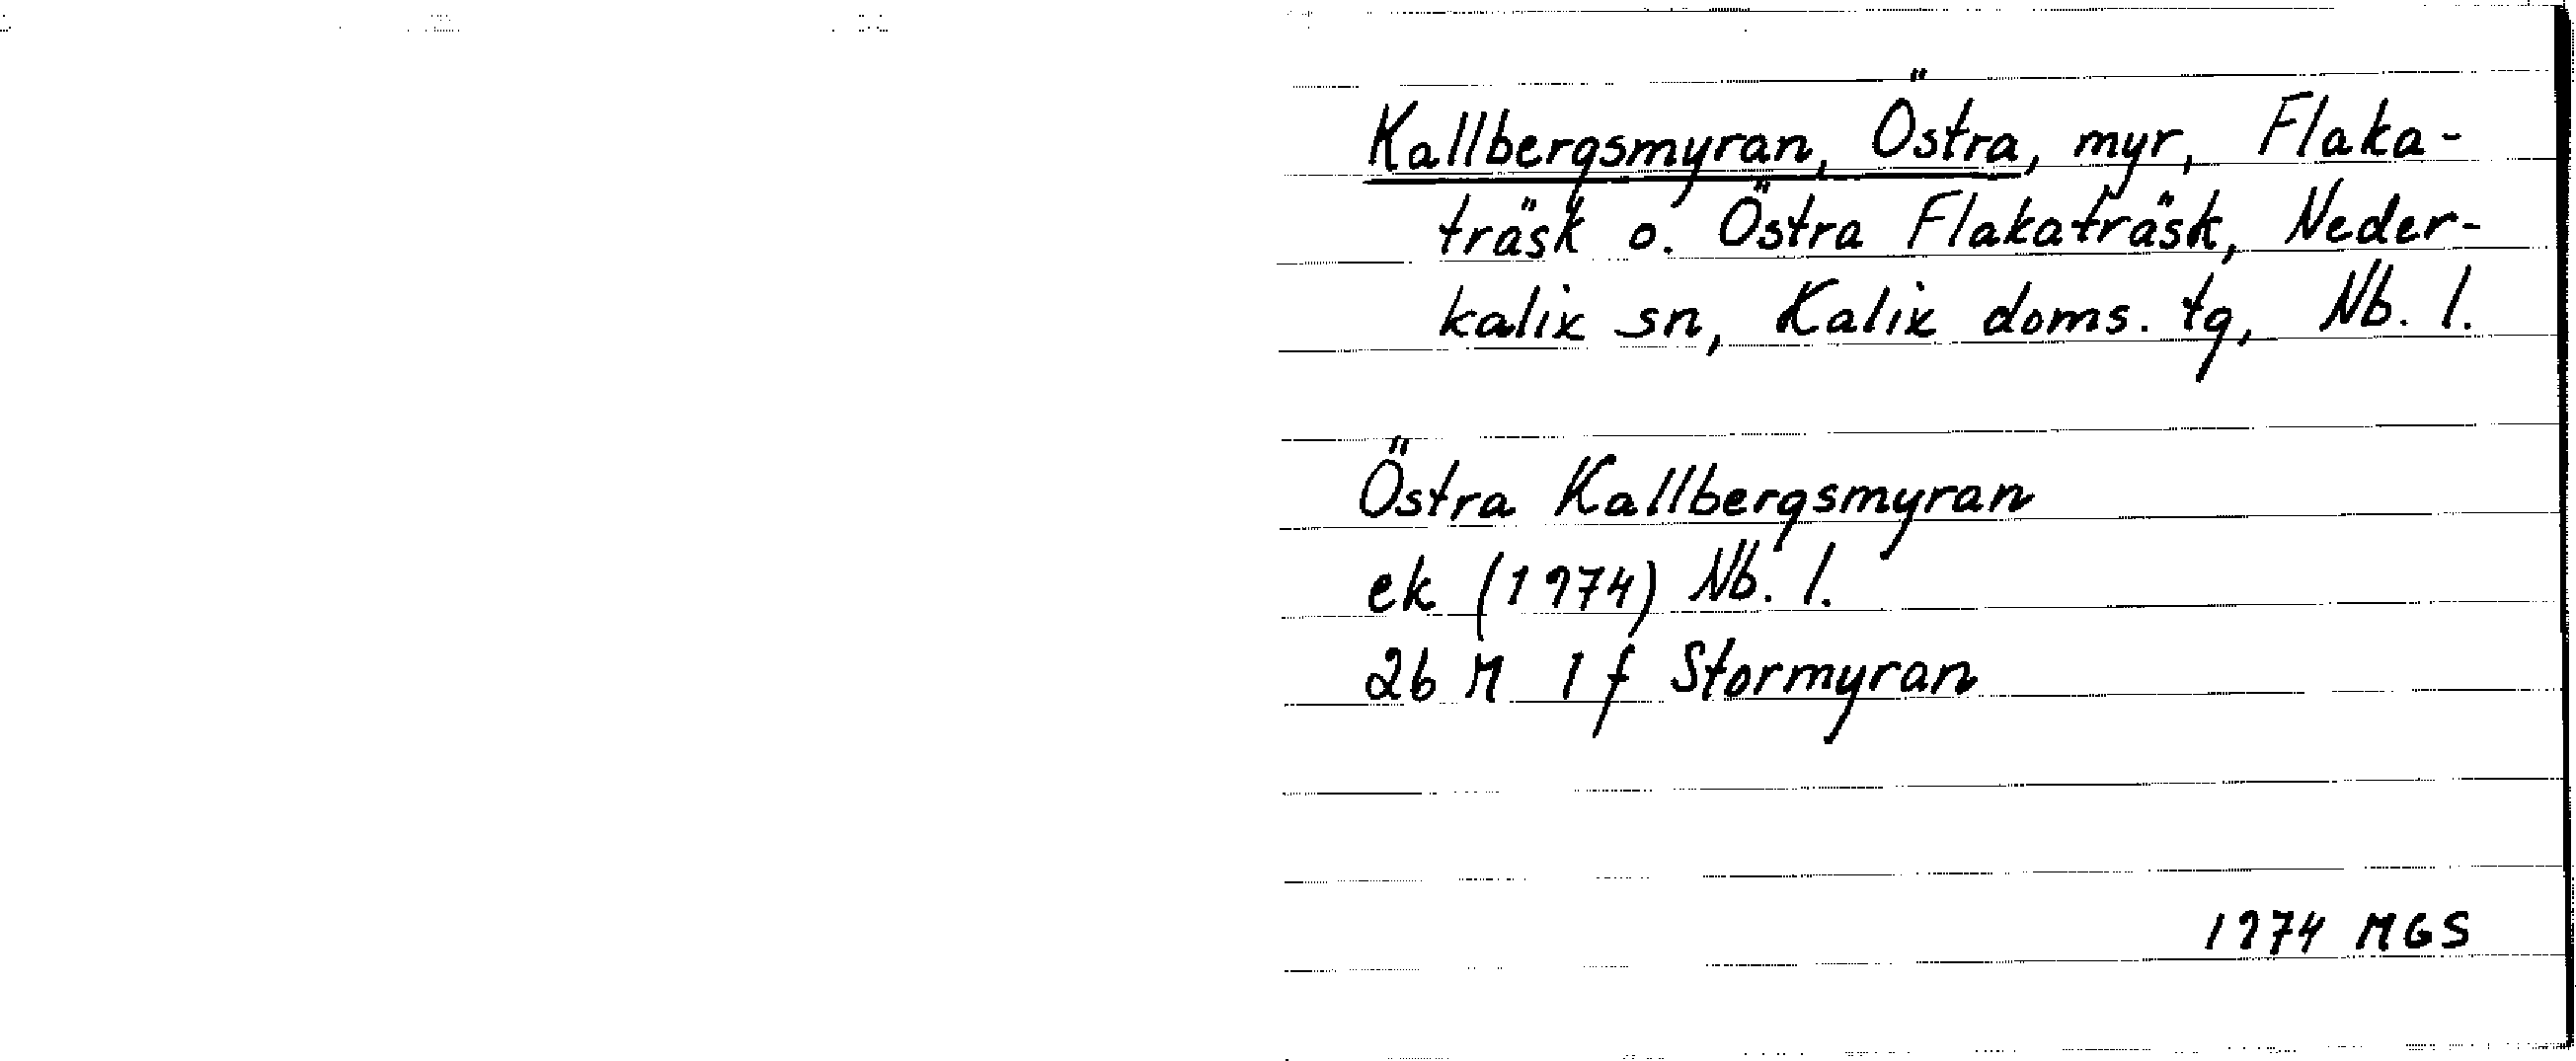 Kallbergsmyran, Östra, myr, Flaka-
träsk o. Östra Flakaträsk, Neder-
kalix sn, Kalix doms. tg, Nb. l.
Östra Kallbergsmyran
ek (1974) Nb. l.
26 M 1 f Stormyran
1974 MGS